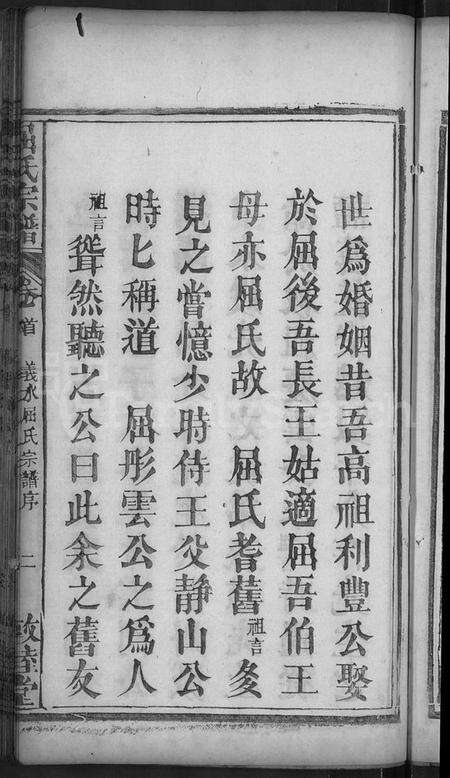 世爲婚姻昔吾高祖利豐公娶
於屈後吾長王姑適屈吾伯王
母亦屈氏故 屈氏耆舊祖言多
見之嘗憶少時侍王父靜山公
時匕稱道 屈彤雲公之爲人
祖言聳然聽之公曰此余之舊友
屈氏宗譜 卷首 義水屈氏宗譜序 二 敦睦堂